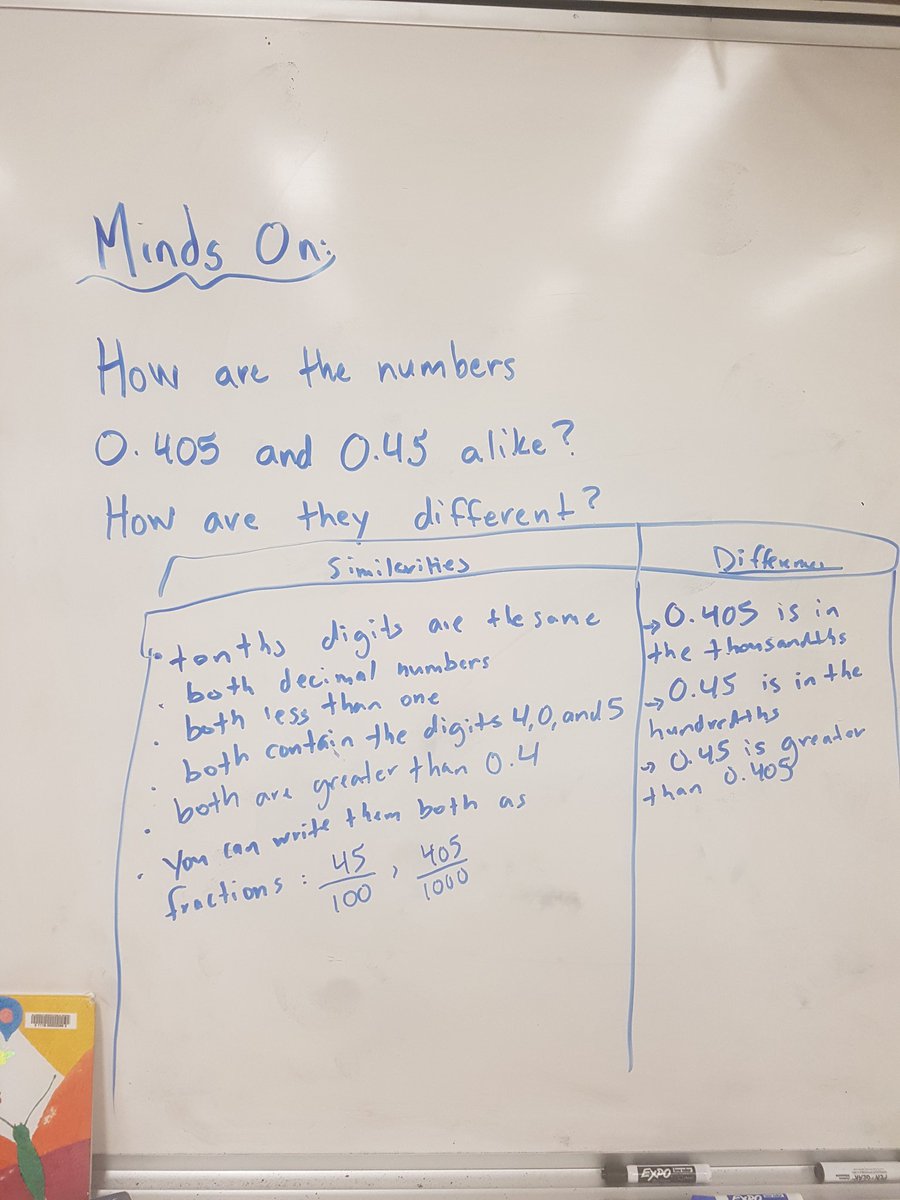 Minds On:
How are the numbers
0.405 and 0.45 alike?
How are they different?
Similarities
Differences
• tenths digits are the same
• both decimal numbers
• both less than one
• both contain the digits 4, 0, and 5
• both are greater than 0.4
• You can write them both as
fractions: 45/100, 405/1000
→ 0.405 is in
the thousandths
→ 0.45 is in the
hundredths
→ 0.45 is greater
than 0.405
EXPO
EXPO